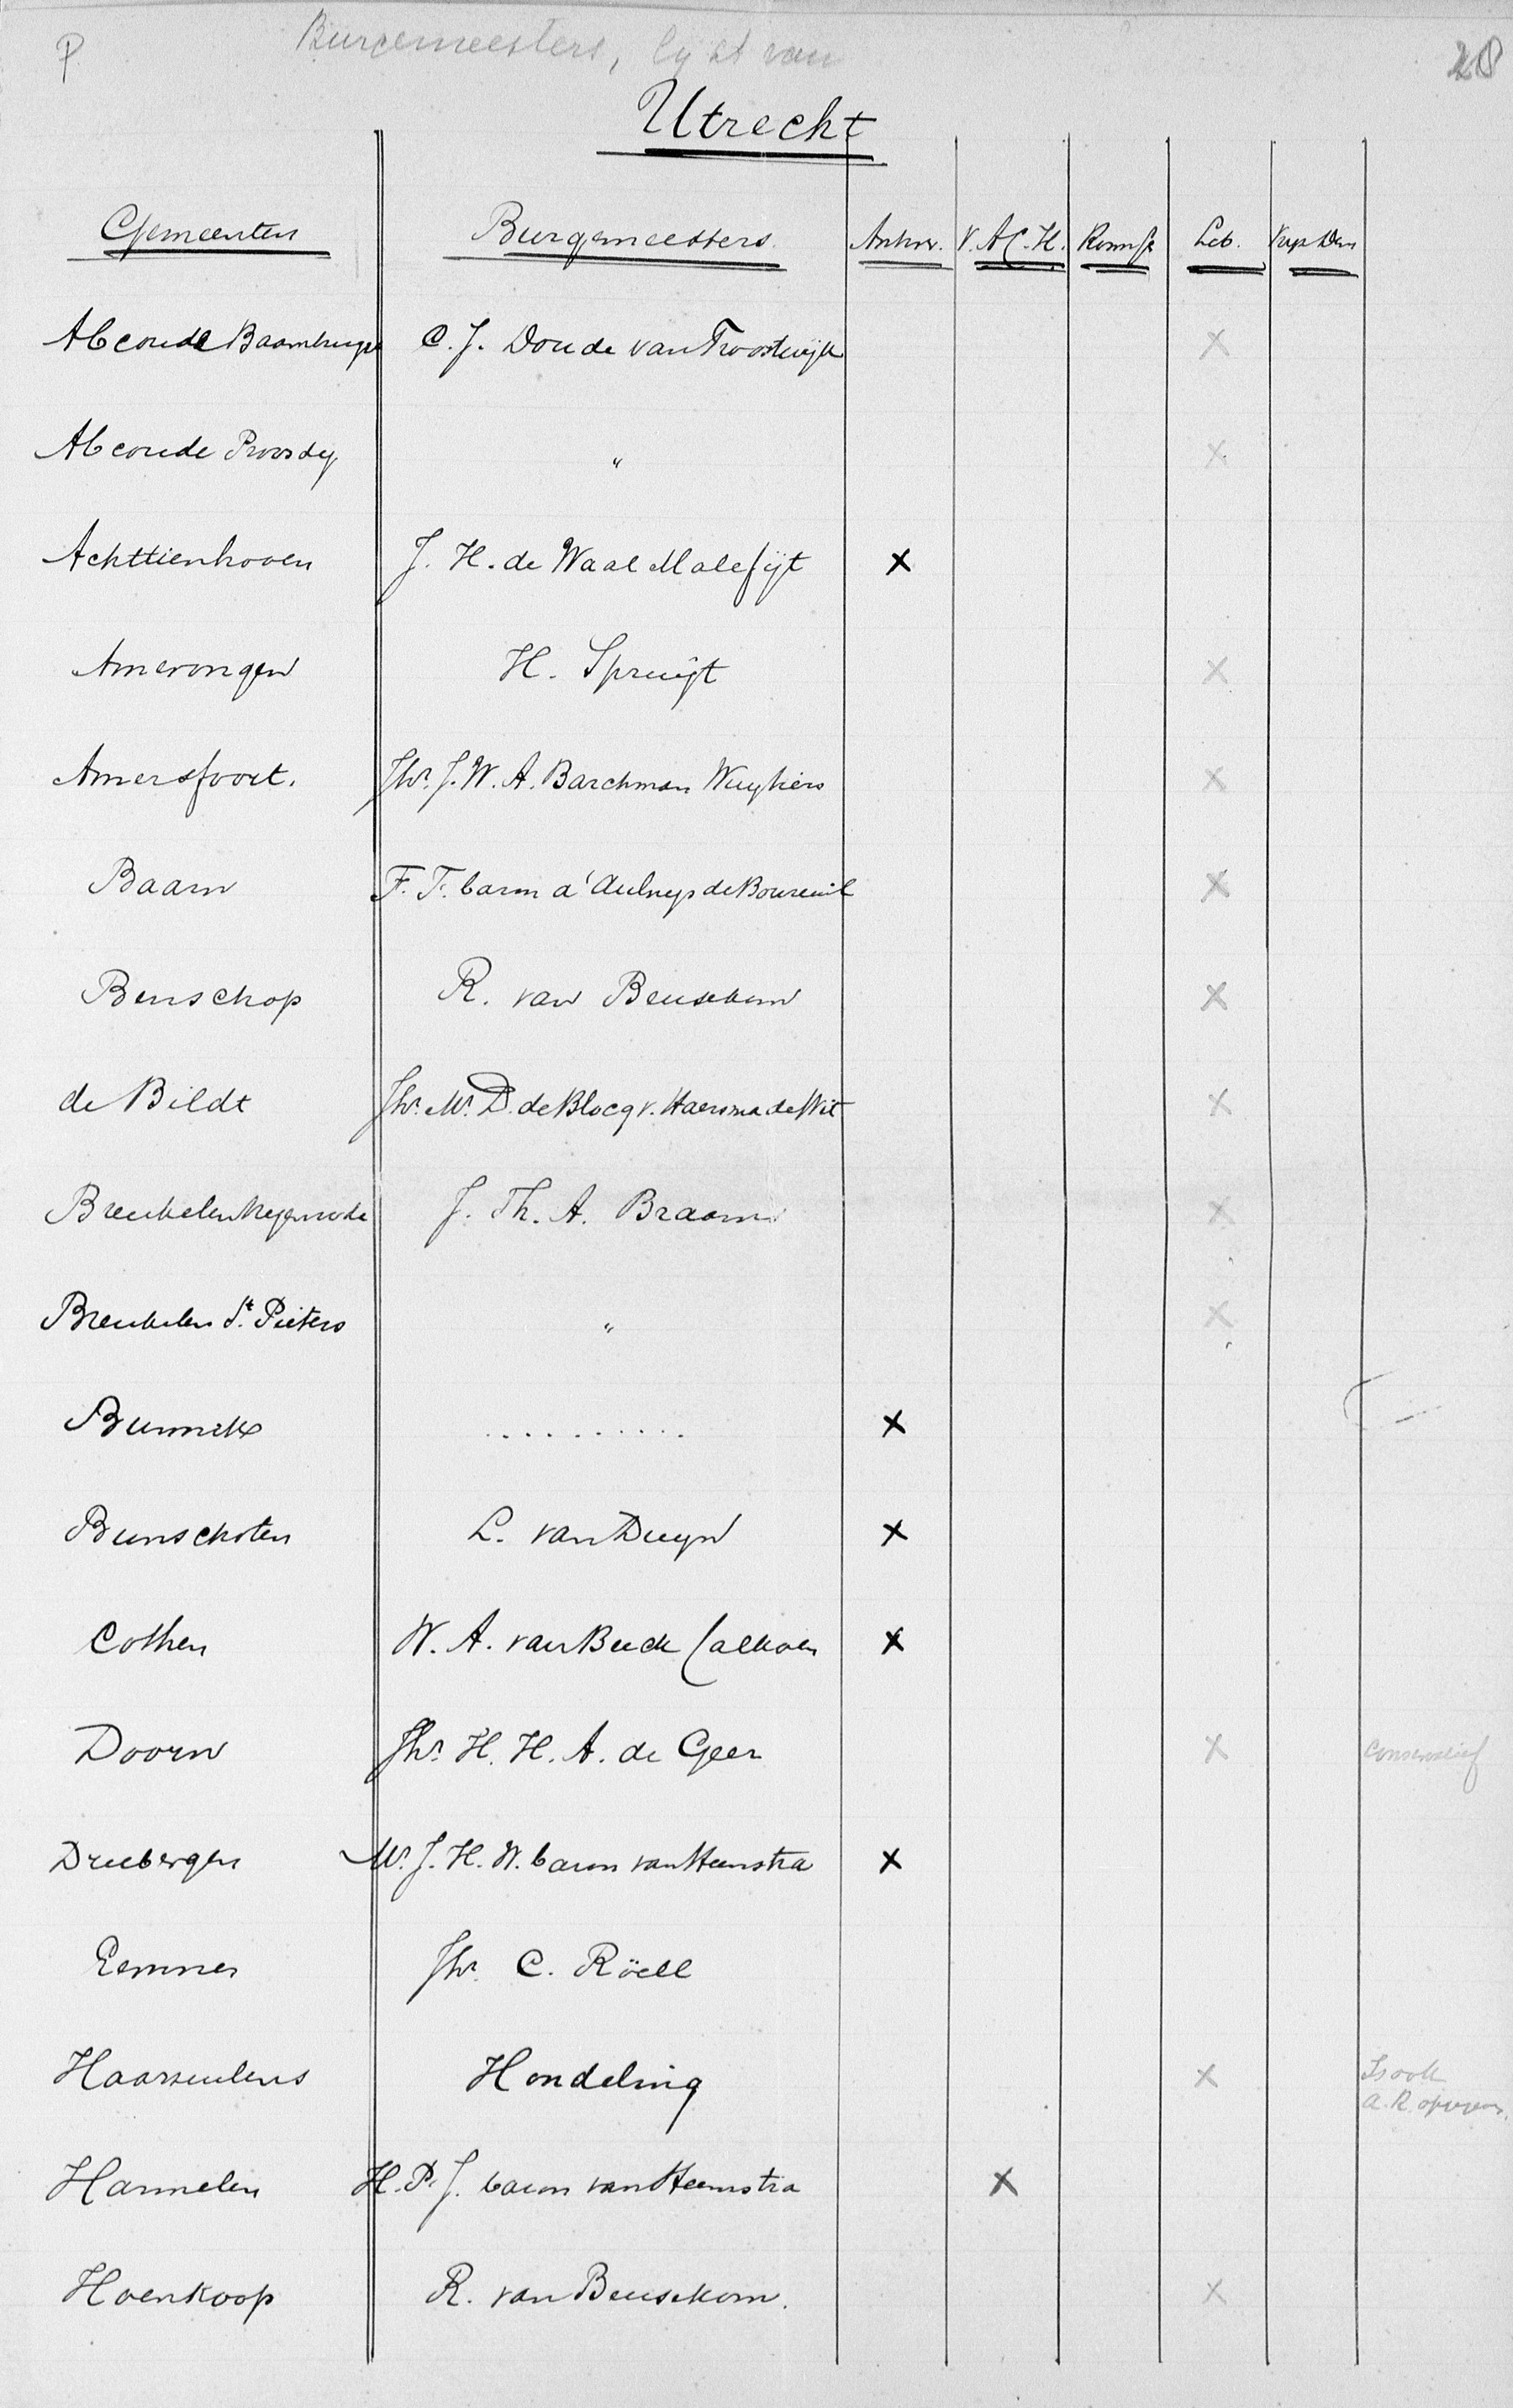 P Burgemeesters, lijst van 28
Utrecht
Gemeenten Burgemeesters Antirev. V.A.C.H. Roomsch Lib. Vrijz Dem
Abcoude Baambrugge C. J. Doude van Troostwijk X
Abcoude Proosdij " X
Achttienhoven J. H. de Waal Malefijt X
Amerongen H. Spruijt X
Amersfoort. Jhr. J. W. A. Barchman Wuytiers X
Baarn F. F. baron d'Aulnys de Bourouill X
Benschop R. van Beusekom X
de Bildt Jhr. Mr. D. de Blocq v. Haersma de Wit X
Breukelen Nyenrode J. Th. A. Braam X
Breukelen St. Pieters " X
Bunnik .......... X
Bunschoten L. van Duyn X
Cothen W. A. van Beeck Calkoen X
Doorn Jhr. H. H. A. de Geer X conservatief
Driebergen Mr. J. H. W. baron van Heemstra X
Eemnes Jhr. C. Röell
Haarzuilens Hondeling X Is ook
a. R. opgegeven.
Harmelen H. P. J. baron van Heemstra X
Hoenkoop R. van Beusekom. X